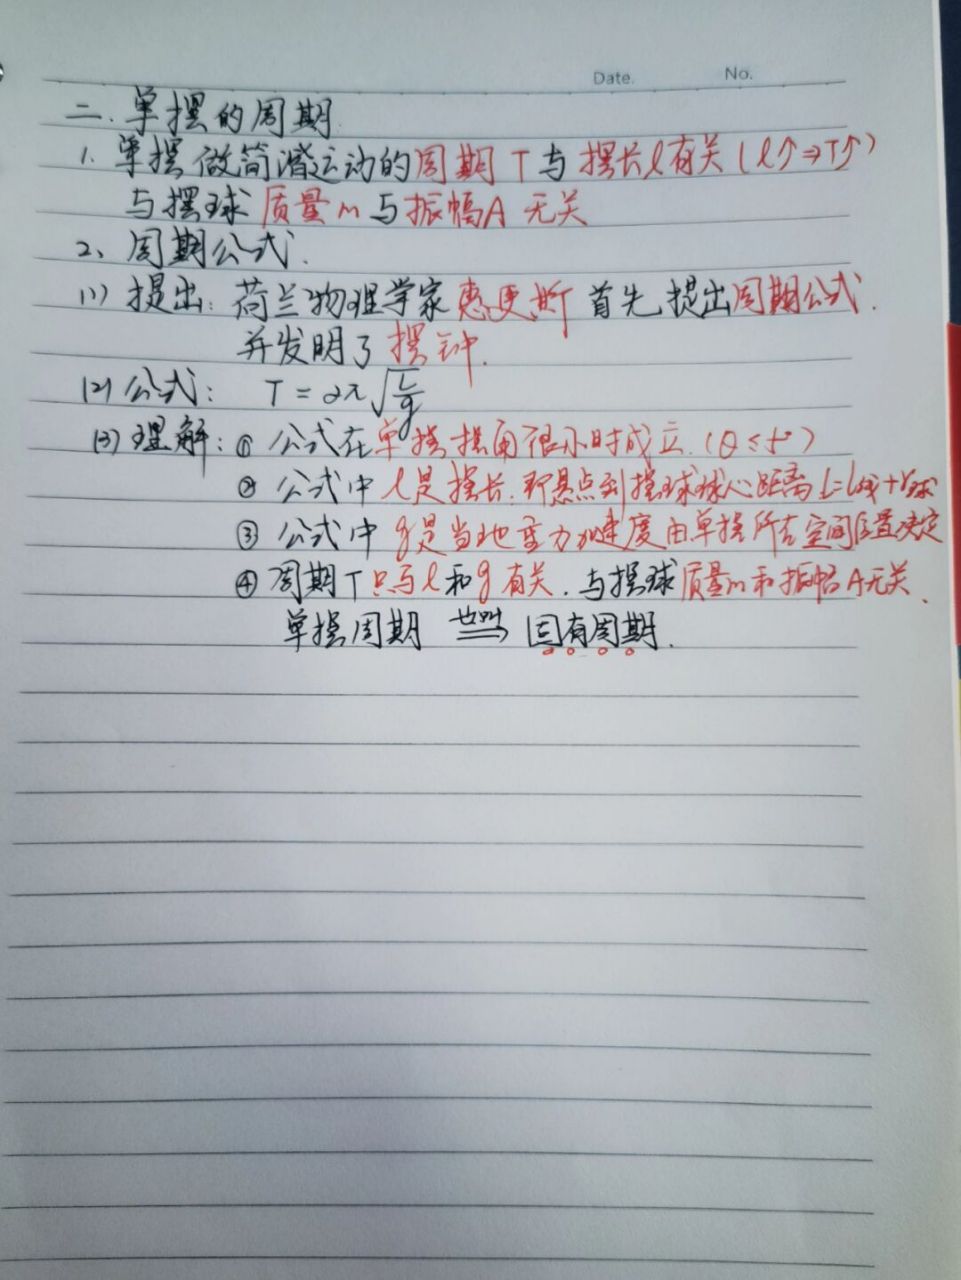 Date. No.
二.单摆的周期.
1.单摆做简谐运动的周期T与摆长l有关(l↑⇒T↑)
与摆球质量m与振幅A无关
2、周期公式.
(1)提出:荷兰物理学家惠更斯首先提出周期公式.
并发明了摆钟.
(2)公式: T=2π√(L/g)
(3)理解:①公式在单摆摆角很小时成立.(θ≤5°)
②公式中l是摆长.即悬点到摆球球心距离L=L线+r球
③公式中g是当地重力加速度由单摆所在空间位置决定
④周期T只与l和g有关.与摆球质量m和振幅A无关.
单摆周期 也叫⇒ 固有周期.